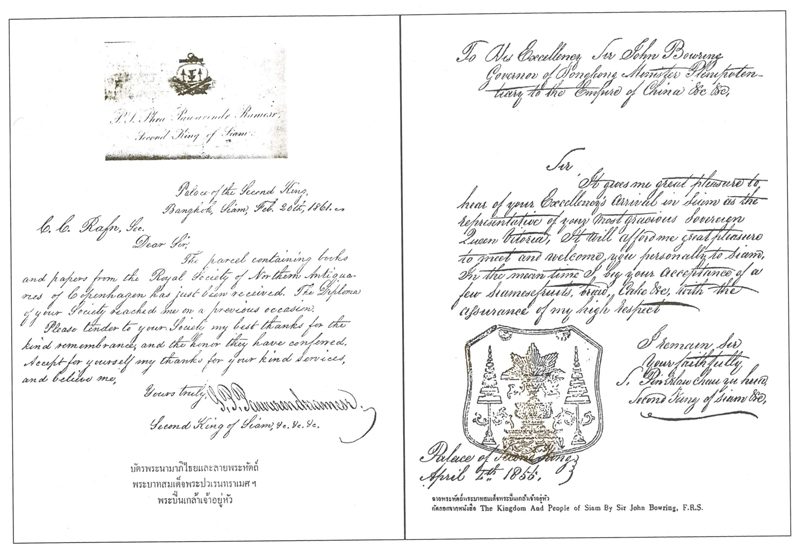 P. S. Phra Pawarendr Ramesr,
Second King of Siam.
Palace of the Second King,
Bangkok, Siam, Feb. 20th, 1861.
C. C. Rafn, Sec.
Dear Sir,
The parcel containing books
and papers from the Royal Society of Northern Antiqua-
ries of Copenhagen has just been received. The Diploma
of your Society reached me on a previous occasion.
Please tender to your Society my best thanks for the
kind remembrance, and the honor they have conferred.
Accept for yourself my thanks for your kind services,
and believe me,
Yours truly,
Second King of Siam, &c. &c. &c.
บัตรพระนามาภิไธยและลายพระหัตถ์
พระบาทสมเด็จพระปวเรนทราเมศฯ
พระปิ่นเกล้าเจ้าอยู่หัว
To His Excellency Sir John Bowring
Governor of Hongkong Minister Plenipoten-
tiary to the Empire of China &c &c,
Sir
It gives me great pleasure to
hear of your Excellency's arrival in Siam as the
representative of your most gracious Sovereign
Queen Victoria, It will afford me great pleasure
to meet and welcome you personally to Siam,
In the mean time I, beg your acceptance of a
few Siamese fruits, bread, Cake &c, with the
assurance of my high respect
I remain Sir
Your faithfully
S. Pin Klau chau yu hua,
Second King of Siam &c,
Palace of Second King
April 4th 1855.
ลายพระหัตถ์พระบาทสมเด็จพระปิ่นเกล้าเจ้าอยู่หัว
คัดลอกจากหนังสือ The Kingdom And People of Siam By Sir John Bowring, F.R.S.